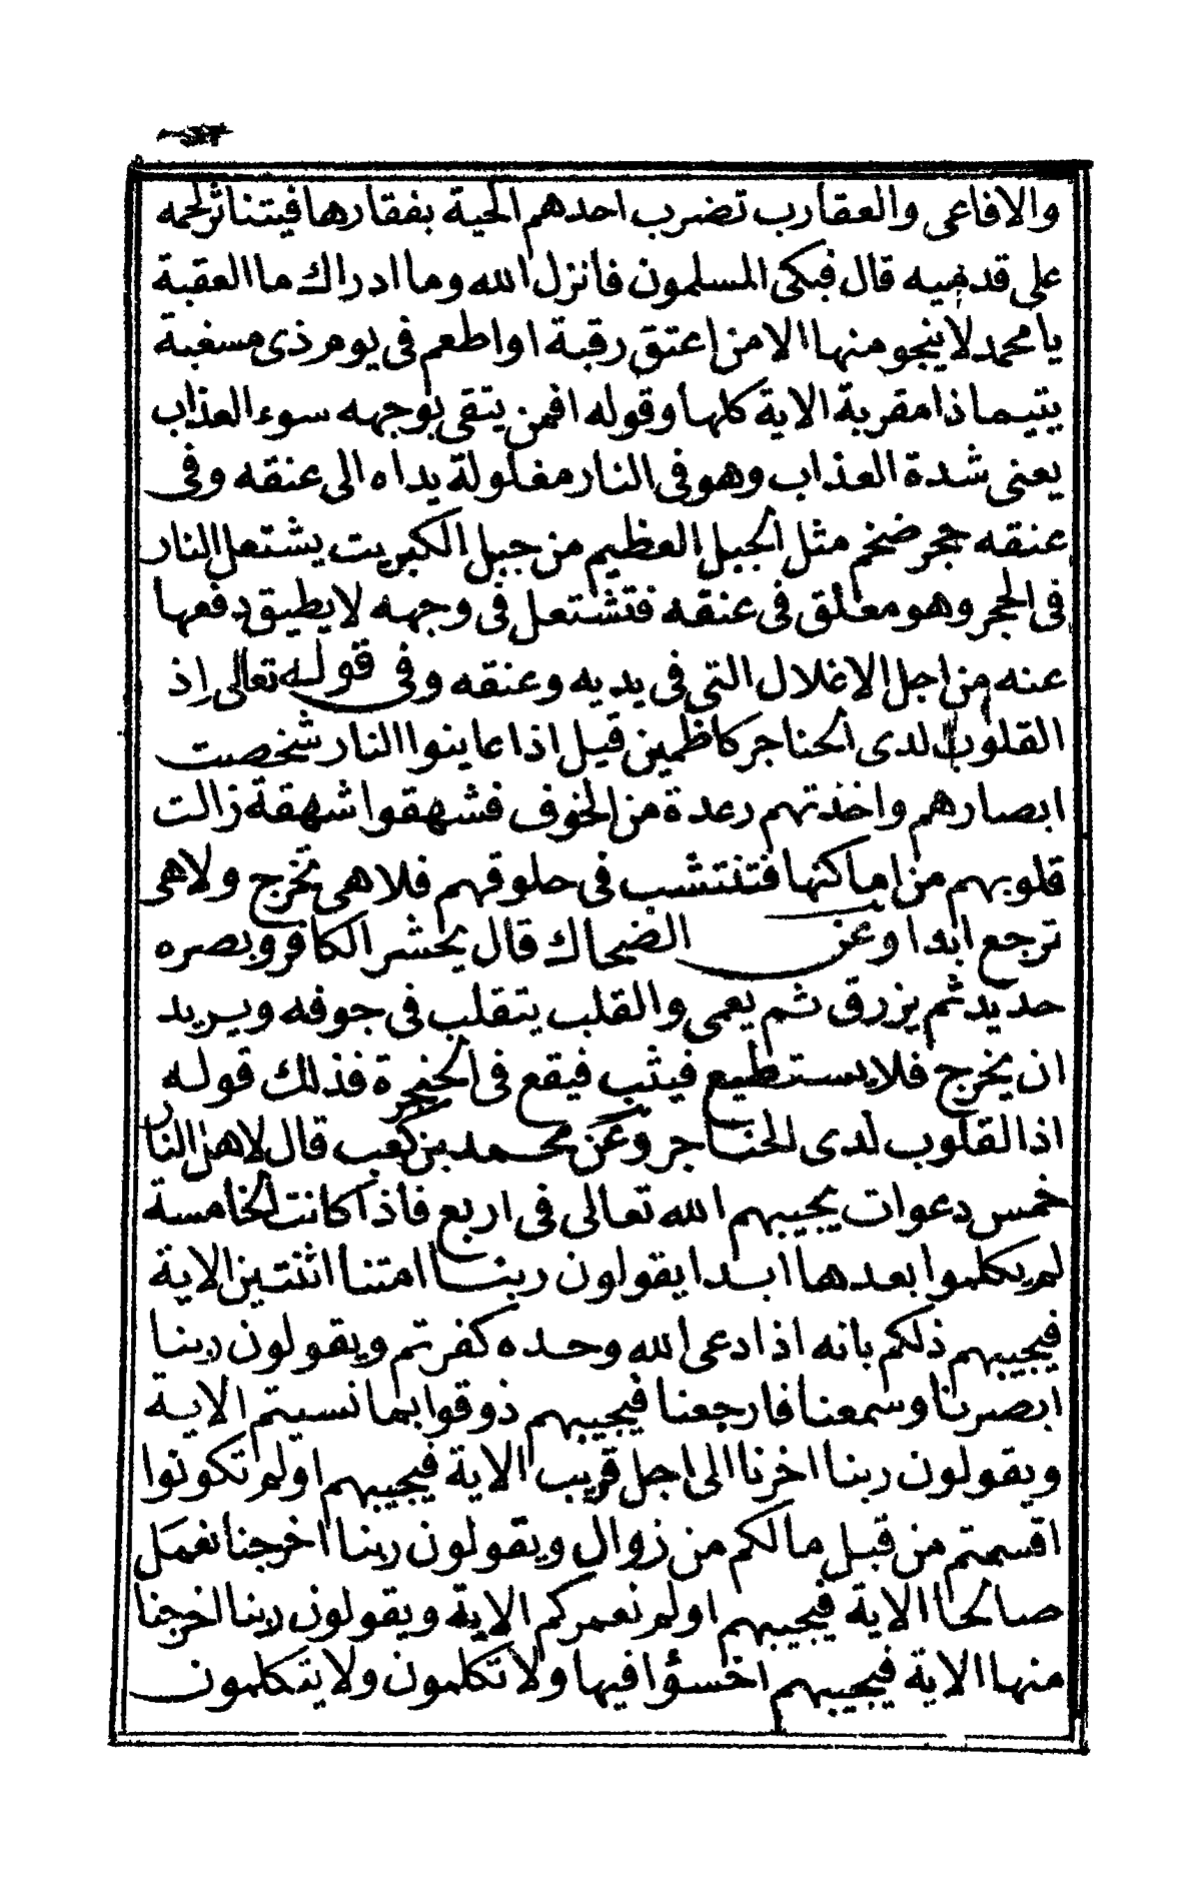 والافاعى والعقارب تضرب احدهم الحية بفقارها فيتناثر لحمه
على قدميه قال فبكى المسلمون فأنزل الله وما ادراك ما العقبة
يا محمد لا ينجو منها الا من اعتق رقبة او اطعم فى يوم ذى مسغبة
يتيما ذا مقربة الاية كلها وقوله افمن يتقى بوجهه سوء العذاب
يعنى شدة العذاب وهو فى النار مغلولة يداه الى عنقه وفى
عنقه حجر ضخم مثل الجبل العظيم من جبل الكبريت يشتعل النار
فى الحجر وهو معلق فى عنقه فتشتعل فى وجهه لا يطيق دفعها
عنه من اجل الاغلال التى فى يديه وعنقه وفى قوله تعالى اذ
القلوب لدى الحناجر كاظمين قيل اذا عاينوا النار شخصت
ابصارهم واخذتهم رعدة من الخوف فشهقوا شهقة زالت
قلوبهم من اماكنها فتنتشب فى حلوقهم فلا هى تخرج ولا هى
ترجع ابدا وعن الضحاك قال يحشر الكافر وبصره
حديد ثم يزرق ثم يعمى والقلب يتقلب فى جوفه ويريد
ان يخرج فلا يستطيع فيثب فيقع فى الحنجرة فذلك قوله
اذ القلوب لدى الحناجر وعن محمد بن كعب قال لاهل النار
خمس دعوات يجيبهم الله تعالى فى اربع فاذا كانت الخامسة
لم يكلموا بعدها ابدا يقولون ربنا امتنا اثنتين الاية
فيجيبهم ذلكم بانه اذا دعى الله وحده كفرتم ويقولون ربنا
ابصرنا وسمعنا فارجعنا فيجيبهم ذوقوا بما نسيتم الاية
ويقولون ربنا اخرنا الى اجل قريب الاية فيجيبهم اولم تكونوا
اقسمتم من قبل مالكم من زوال ويقولون ربنا اخرجنا نعمل
صالحا الاية فيجيبهم اولم نعمركم الاية ويقولون ربنا اخرجنا
منها الاية فيجيبهم اخسؤا فيها ولا تكلمون ولا يتكلمون